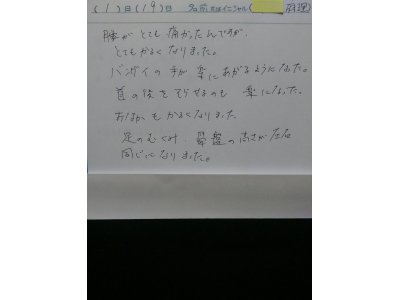 (1)日(19)日 名前またはイニシャル( 様)
腰が とても 痛かったんですが、
とてもかるくなりました。
バンザイの手が 楽にあがるようになった。
首の後をそらせるのも 楽になった。
おなかもかるくなりました
足のむくみ、骨盤の高さが左右
同じになりました。